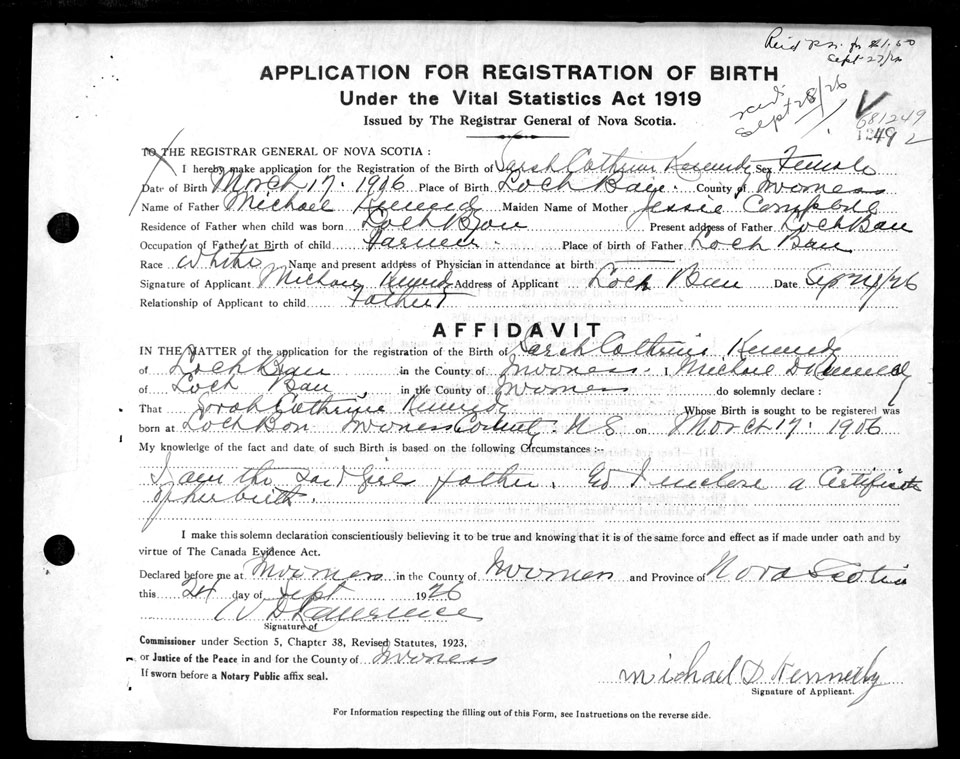 Sept 27/26
APPLICATION FOR REGISTRATION OF BIRTH
Under the Vital Statistics Act 1919
Sept 28/26
Issued by The Registrar General of Nova Scotia.
681249
1249 2
TO THE REGISTRAR GENERAL OF NOVA SCOTIA :
I hereby make application for the Registration of the Birth of Sarah Cathrine Kennedy Sex Female
Date of Birth March 17. 1906 Place of Birth Loch Ban. County of Inverness
Name of Father Michael Kennedy Maiden Name of Mother Jessie Campbell
Residence of Father when child was born Loch Ban Present address of Father Loch Ban
Occupation of Father at Birth of child Farmer. Place of birth of Father Loch Ban
Race White Name and present address of Physician in attendance at birth
Signature of Applicant Michael Kennedy Address of Applicant Loch Ban Date Sep 24/26
Relationship of Applicant to child Father
AFFIDAVIT
IN THE MATTER of the application for the registration of the Birth of Sarah Cathrine Kennedy
of Loch Ban in the County of Inverness. I Michael D Kennedy
of Loch Ban, in the County of Inverness do solemnly declare :
That Sarah Cathrine Kennedy Whose Birth is sought to be registered was
born at Loch Ban Inverness County. N S on March 17. 1906
My knowledge of the fact and date of such Birth is based on the following Circumstances :-
I am the said girls father. I enclose a Certificate
of her birth.
I make this solemn declaration conscientiously believing it to be true and knowing that it is of the same force and effect as if made under oath and by
virtue of The Canada Evidence Act.
Declared before me at Inverness in the County of Inverness and Province of Nova Scotia
this 24 day of Sept 1926
W D Lawrence
Signature of
Commissioner under Section 5, Chapter 38, Revised Statutes, 1923,
or Justice of the Peace in and for the County of Inverness
If sworn before a Notary Public affix seal.
Michael D Kennedy
Signature of Applicant.
For Information respecting the filling out of this Form, see Instructions on the reverse side.